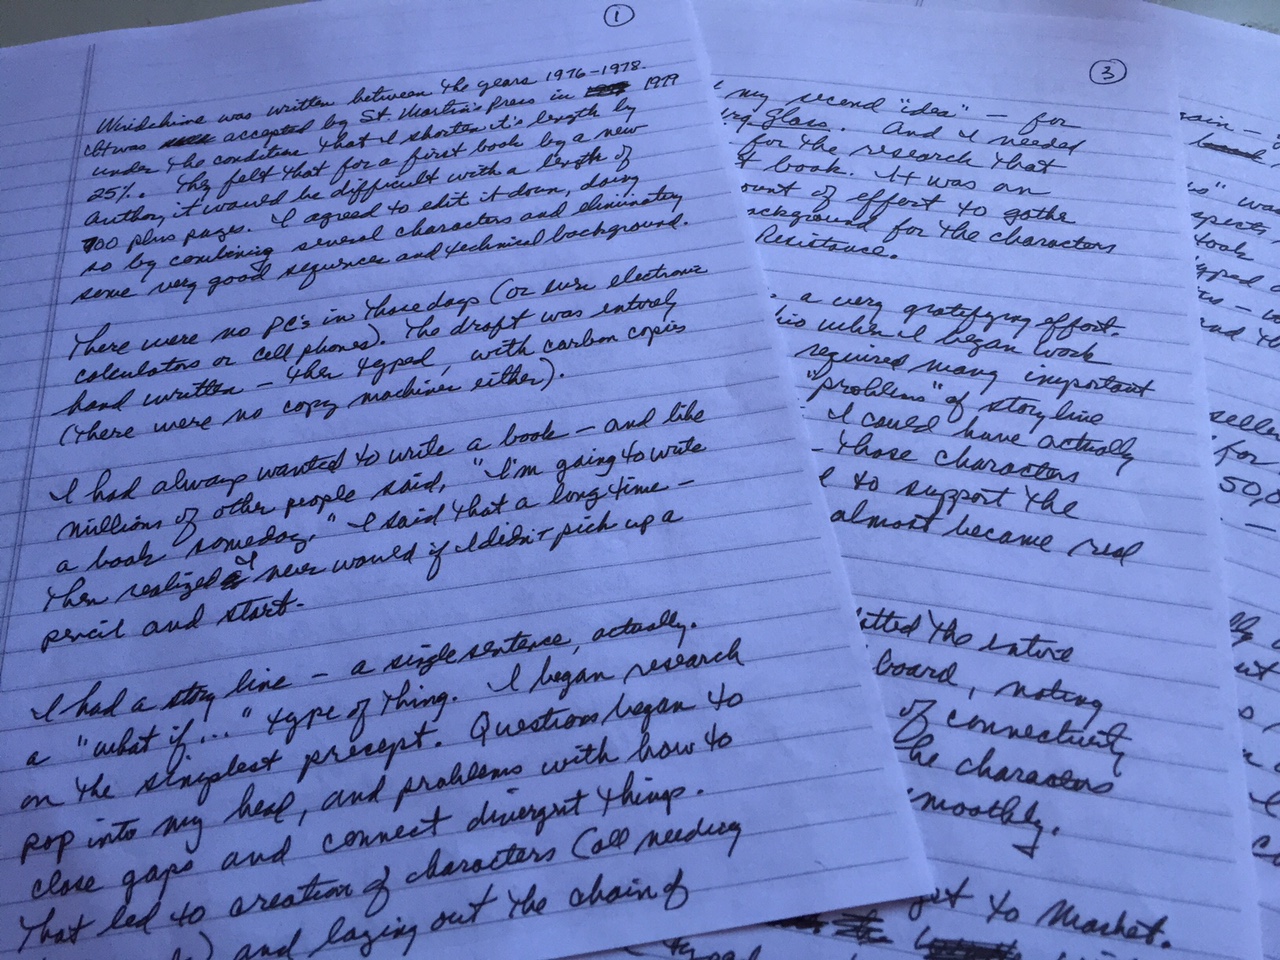 1
Windchime was written between the years 1976-1978.
It was accepted by St. Martin's Press in 1979
under the condition that I shorten it's length by
25%. They felt that for a first book by a new
author, it would be difficult with a length of
700 plus pages. I agreed to edit it down, doing
so by combining several characters and eliminating
some very good sequences and technical background.
There were no PC's in those days (or even electronic
calculators or cell phones). The draft was entirely
hand written - then typed, with carbon copies
(there were no copy machines either).
I had always wanted to write a book - and like
millions of other people said, "I'm going to write
a book someday." I said that a long time -
then realized I never would if I didn't pick up a
pencil and start.
I had a story line - a single sentence, actually.
a "what if..." type of thing. I began research
on the simplest precept. Questions began to
pop into my head, and problems with how to
close gaps and connect divergent things.
That led to creation of characters (all needing
) and laying out the chain of
3
my second "idea" - for
Glass. And I needed
for the research that
book. It was an
of effort to gathe
background for the characters
Resistance.
a very gratifying effort.
when I began work
required many important
"problems" of story line
I could have actually
- those characters
to support the
almost became real
the entire
board, noting
of connectivity
the characters
smoothly.
get to market.
took
seller
for
50,0